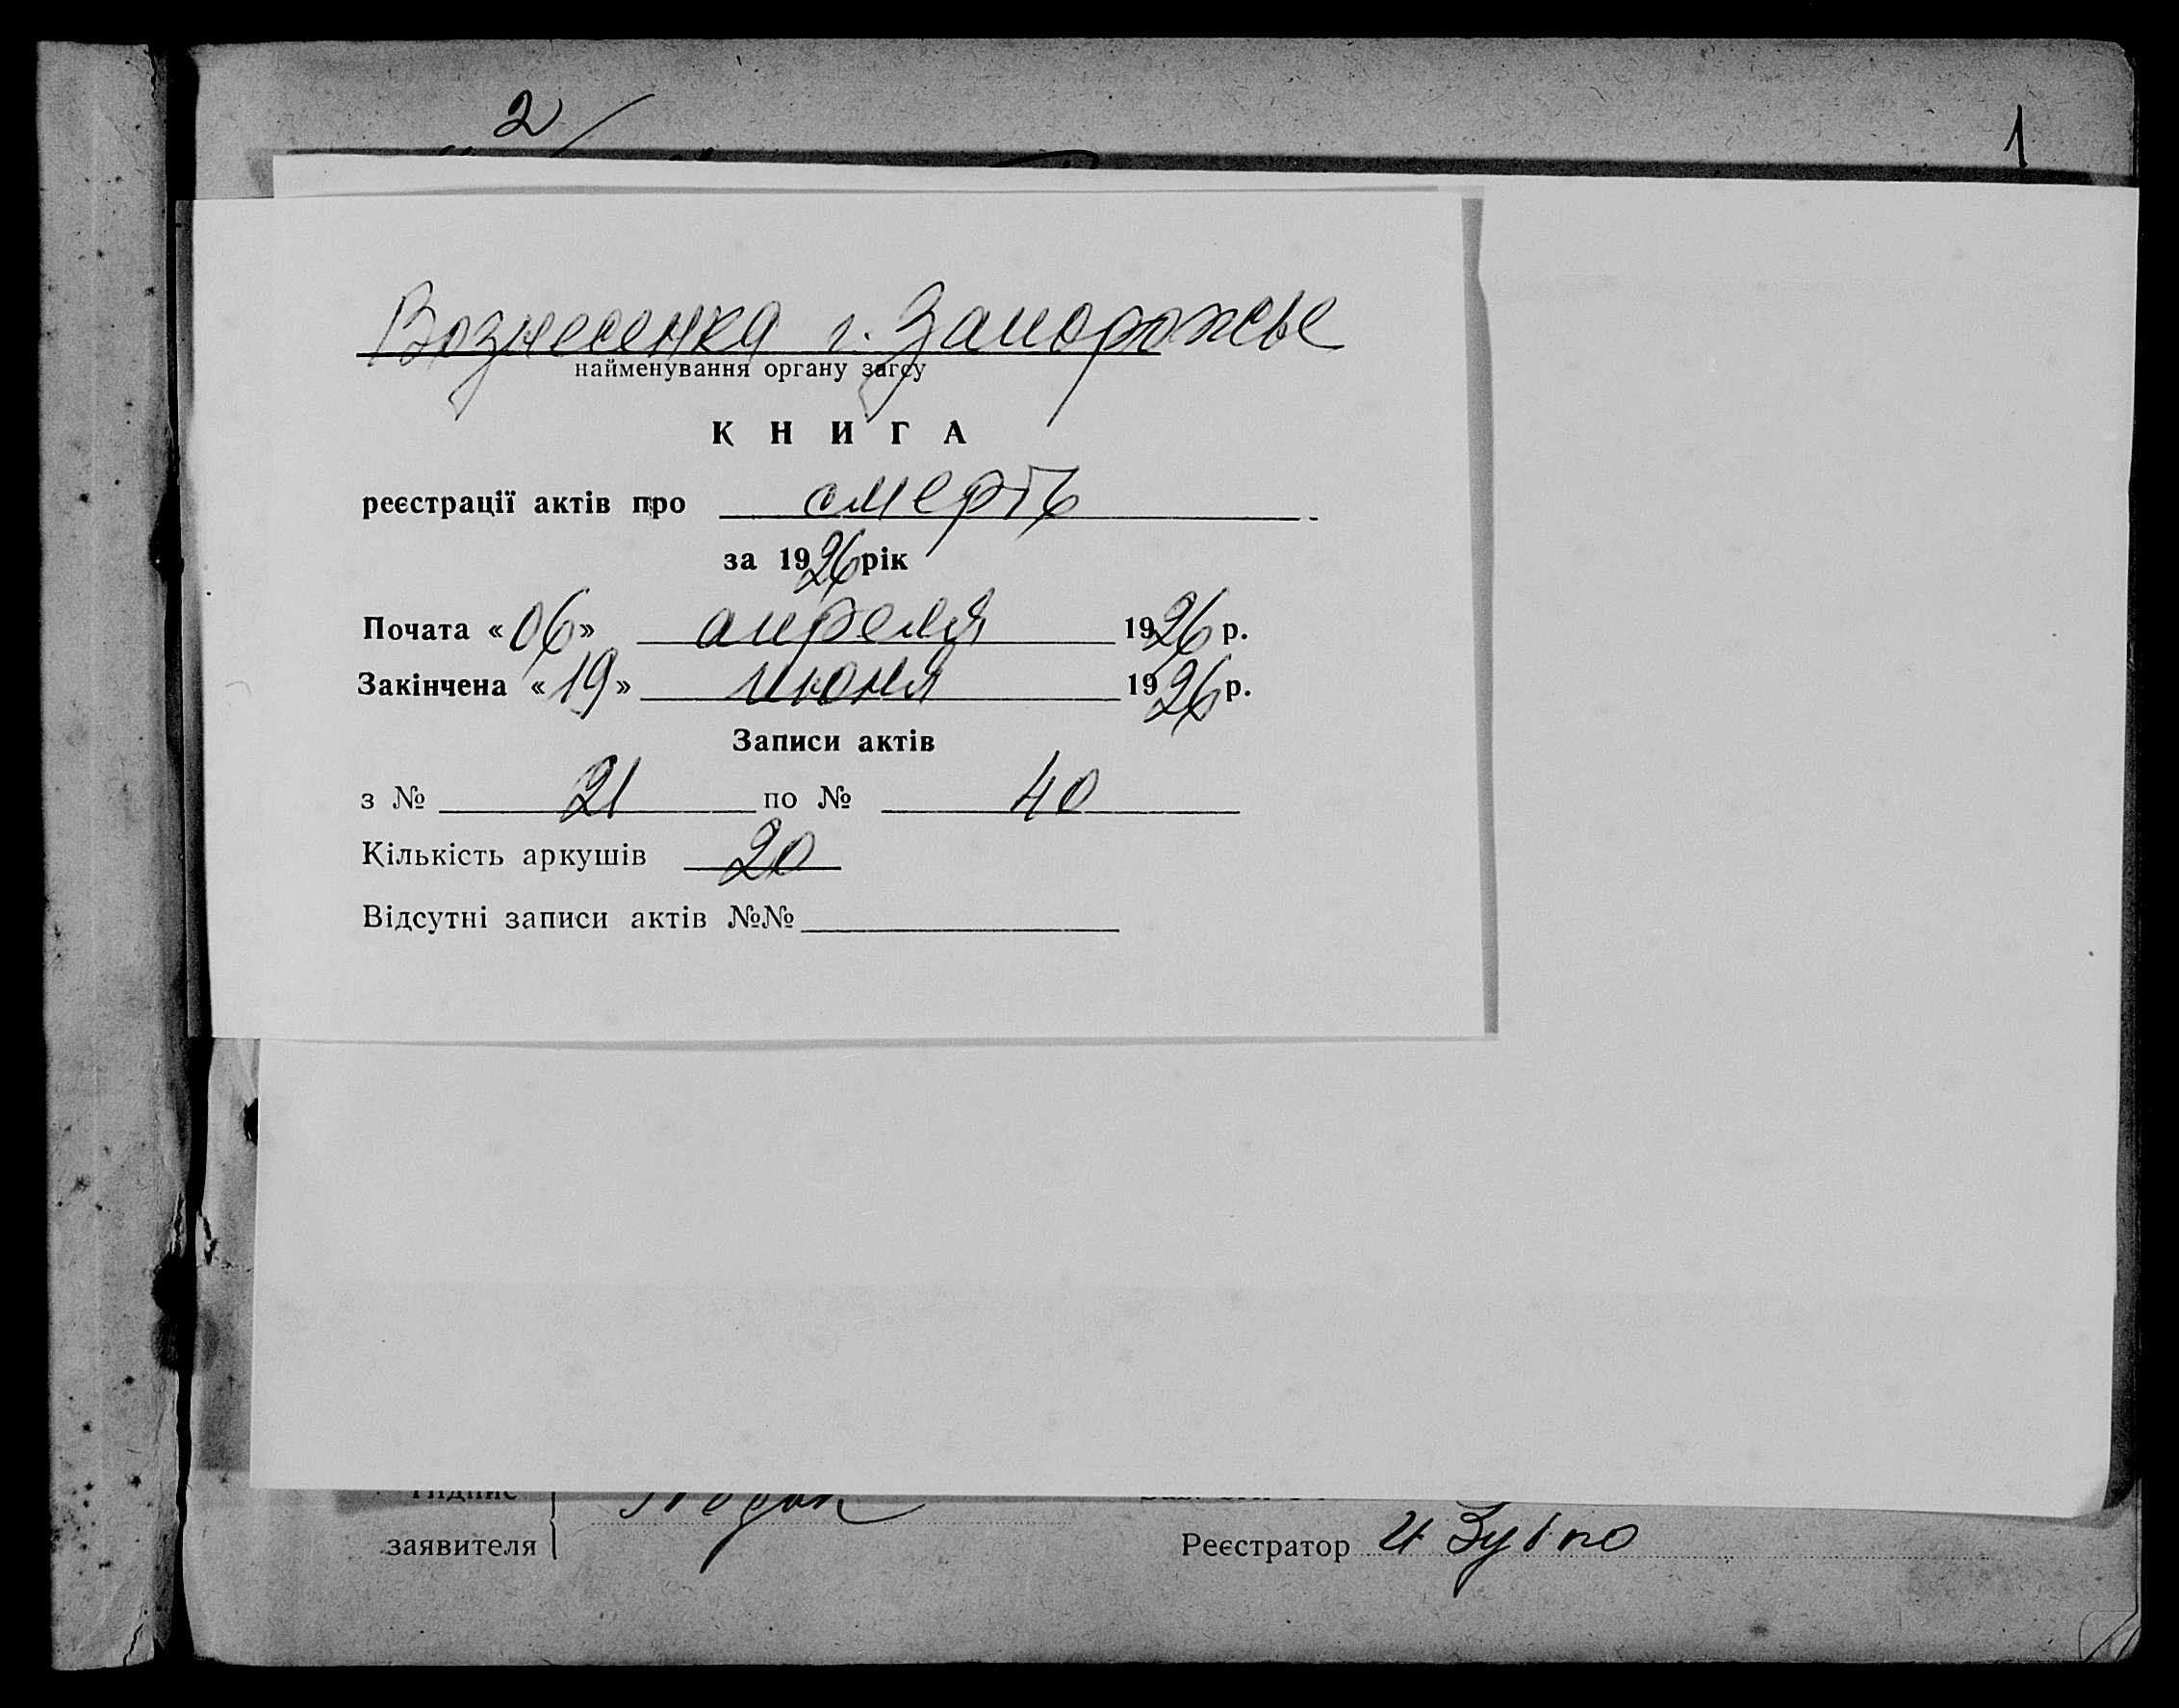 2
1
Вознесенка г. Запорожье
найменування органу загсу
КНИГА
реєстрації актів про смерть
за 1926 рік
Почата «06» апреля 1926 р.
Закінчена «19» июня 1926 р.
Записи актів
з № 21 по № 40
Кількість аркушів 20
Відсутні записи актів №№
Підпис
заявителя
Реєстратор